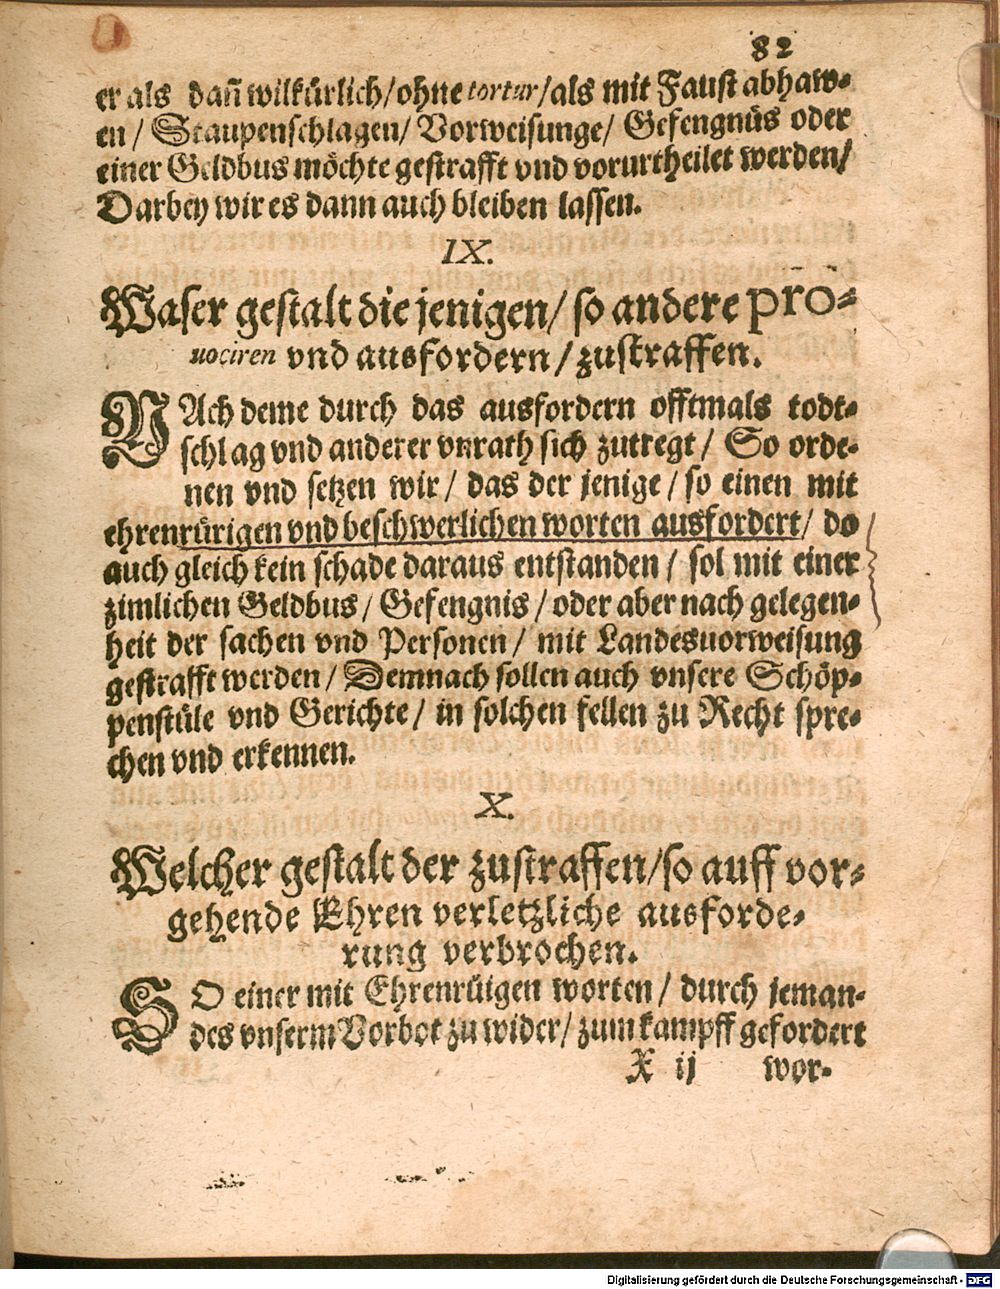 82
er als dañ wilkürlich/ohne tortur/als mit Faust abhaw-
en/ Staupenschlagen/ Vorweisunge/ Gefengnüs oder
einer Geldbus möchte gestrafft vnd vorurtheilet werden/
Darbey wir es dann auch bleiben lassen.
IX.
Waser gestalt die jenigen/ so andere pro-
uociren vnd ausfordern/ zustraffen.
NAch deme durch das ausfordern offtmals todt-
schlag vnd anderer vnrath sich zutregt/ So orde-
nen vnd setzen wir/ das der jenige/ so einen mit
ehrenrürigen vnd beschwerlichen worten ausfordert/ do
auch gleich kein schade daraus entstanden/ sol mit einer
zimlichen Geldbus/ Gefengnis/ oder aber nach gelegen-
heit der sachen vnd Personen/ mit Landesuorweisung
gestrafft werden/ Demnach sollen auch vnsere Schöp-
penstüle vnd Gerichte/ in solchen fellen zu Recht spre-
chen vnd erkennen.
X.
Welcher gestalt der zustraffen/so auff vor-
gehende Ehren verletzliche ausforde-
rung verbrochen.
SO einer mit Ehrenrüigen worten/ durch jeman-
des vnserm Vorbot zu wider/ zum kampff gefordert
X ij wor-
Digitalisierung gefördert durch die Deutsche Forschungsgemeinschaft - DFG